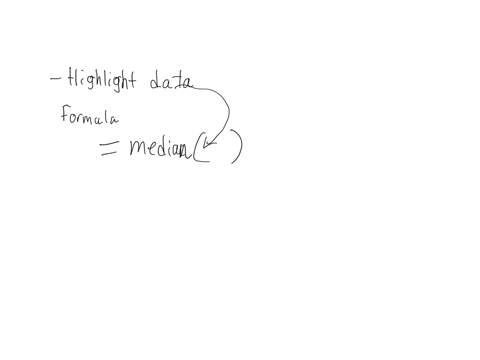 - Highlight data
Formula
= median( )